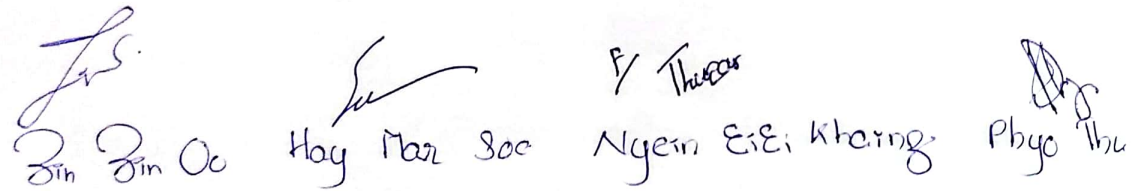 F/ Thuzar
Zin Zin Oo Hay Mar Soe Nyein Ei Ei Khaing Phyo Thu